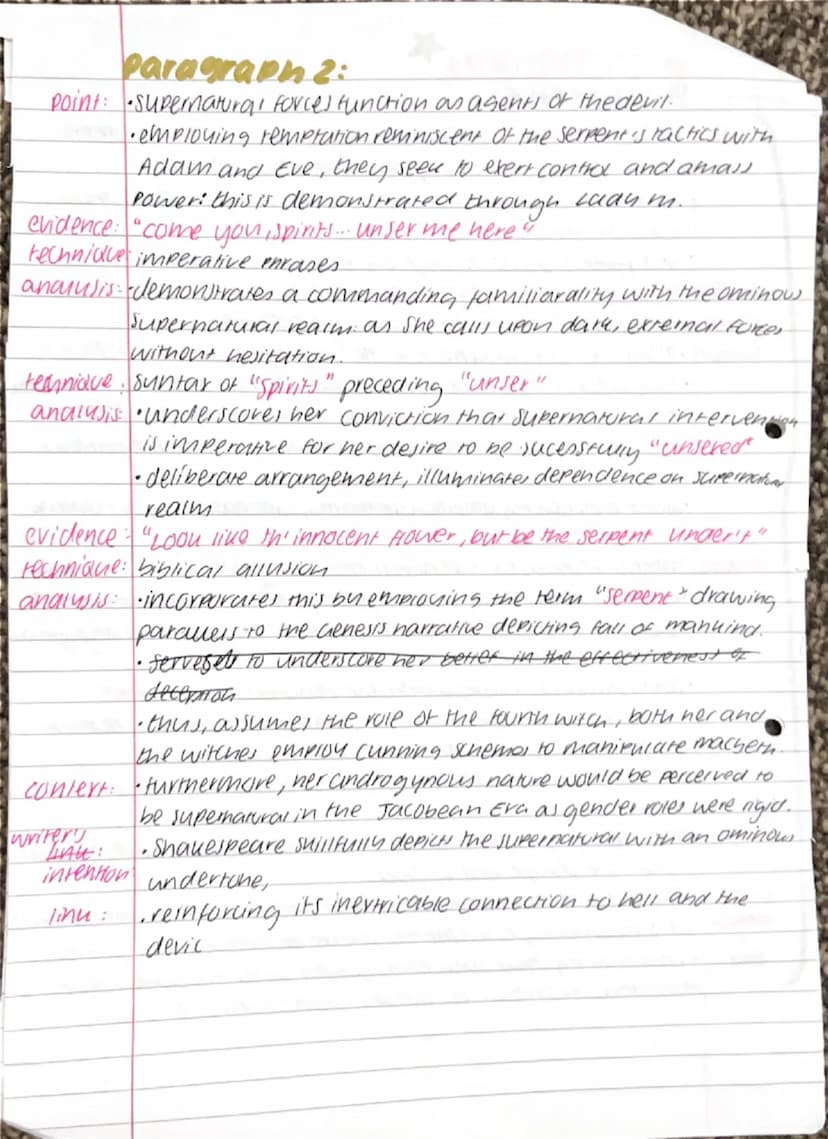 Paragraph 2:
point: •supernatural forces function as agents of the devil.
•employing temptation reminiscent of the serpent's tactics with
Adam and Eve, they seek to exert control and amass
power: this is demonstrated through Lady M.
evidence: "come you, spirits... unsex me here"
technique: imperative phrases
analysis: •demonstrates a commanding familiarality with the ominous
supernatural realm: as she calls upon dark, external forces
without hesitation.
technique: syntax of "spirits" preceding "unsex"
analysis: •underscores her conviction that supernatural intervention
is imperative for her desire to be sucessfully "unsexed"
•deliberate arrangement, illuminates dependence on supernatural
realm
evidence: "Look like th' innocent flower, but be the serpent under't"
technique: biblical allusion
analysis: •incorporates this by employing the term "serpent" drawing
parallels to the Genesis narrative depicting fall of mankind.
• serves to underscore her belief in the effectiveness of
deception
•thus, assumes the role of the fourth witch, both her and
the witches employ cunning schemes to manipulate macbeth
context: •furthermore, her androgynous nature would be perceived to
be supernatural in the Jacobean Era as gender roles were rigid.
writer's
link: •Shakespeare skillfully depicts the supernatural with an ominous
intention undertone,
link: •reinforcing its inextricable connection to hell and the
devil